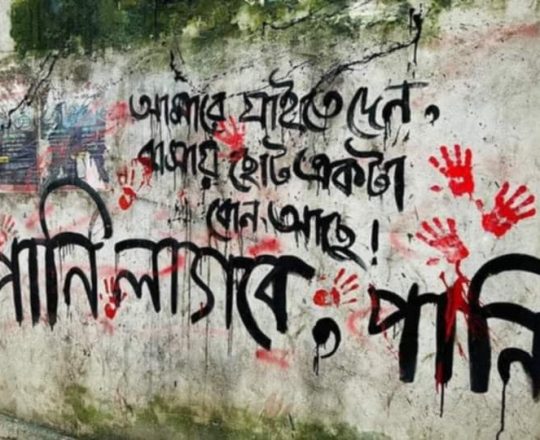 আমারে যাইতে দেন,
বাসায় ছোট একটা
বোন আছে!
পানি লাগবে, পানি